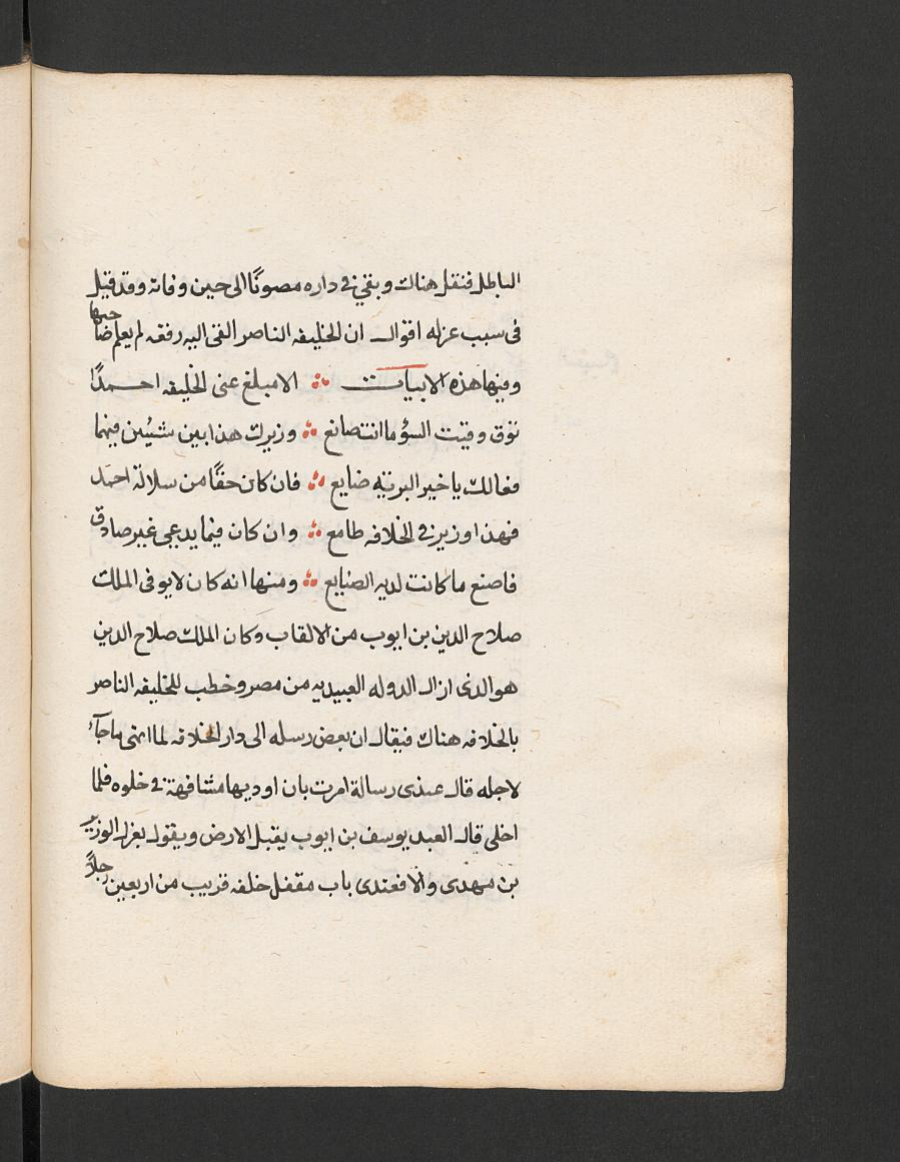 الباطل فنقل هناك وبقي في داره مصونًا الى حين وفاته وقد قيل
فى سبب عزله اقوال ان الخليفه الناصر القى اليه رقعه لم يعلم صاحبها
وفيها هذه الابيات ؞ الا مبلغ عنى الخليفه احمدًا
توق وقيت السؤ ما انت صانع ؞ وزيرك هذا بين شيئين فيهما
فعالك يا خير البريه ضايع ؞ فان كان حقًا من سلالة احمد
فهذا وزير في الخلافه طامع ؞ وان كان فيما يدعى غير صادق
فاصنع ما كانت لديه الصنايع ؞ ومنها انه كان لا يوفى الملك
صلاح الدين بن ايوب من الالقاب وكان الملك صلاح الدين
هو الذى ازال الدوله العبيديه من مصر وخطب للخليفه الناصر
بالخلافه هناك فيقال ان بعض رسله الى دار الخلافه لما انهى ما جآء
لاجله قال عندى رسالة امرت بان اوديها مشافهة في خلوه فلما
اخلى قال العبد يوسف بن ايوب يقبل الارض ويقول بعزل الوزير
بن مهدى والا فعندى باب مقفل خلفه قريب من اربعين رجلًا